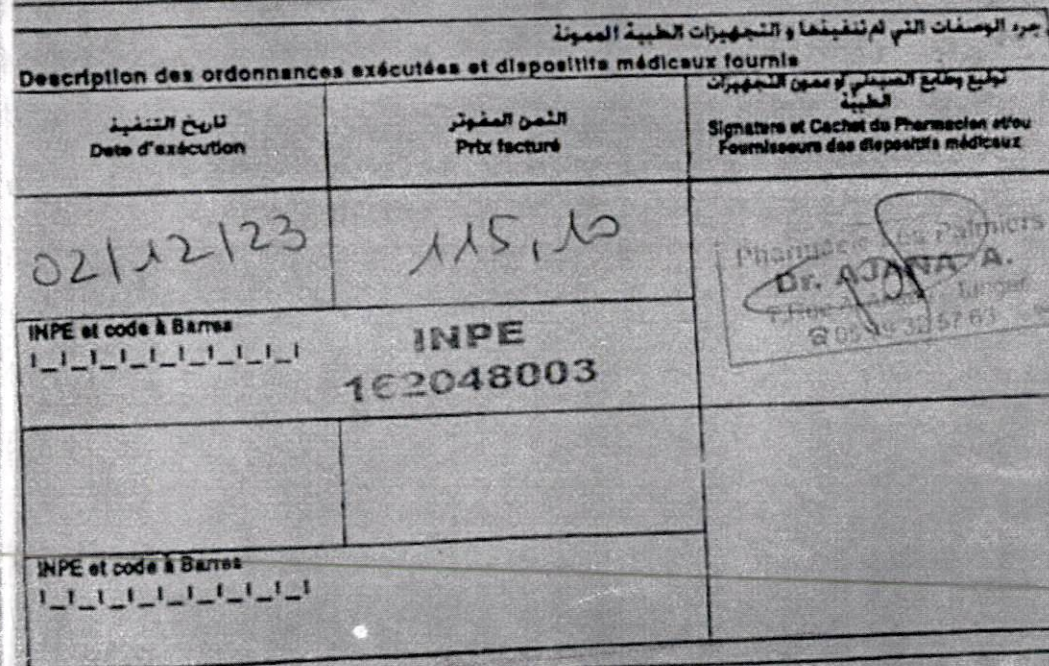 جرد الوصفات التي تم تنفيذها و التجهيزات الطبية الممونة
Description des ordonnances exécutées et dispositifs médicaux fournis
تاريخ التنفيذ
Date d'exécution
الثمن المفوتر
Prix facturé
توقيع وطابع الصيدلي او ممون التجهيزات
الطبية
Signature et Cachet du Pharmacien et/ou
Fournisseurs des dispositifs médicaux
02/12/23
115,10
Pharmacie Les Palmiers
Dr. AJANA A.
Tanger
INPE et code à Barres
INPE
162048003
INPE et code à Barres